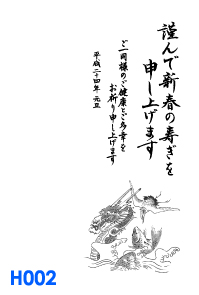 謹んで新春の寿ぎを
申し上げます
ご一同様のご健康とご多幸を
お祈り申し上げます
平成二十四年・元旦
H002